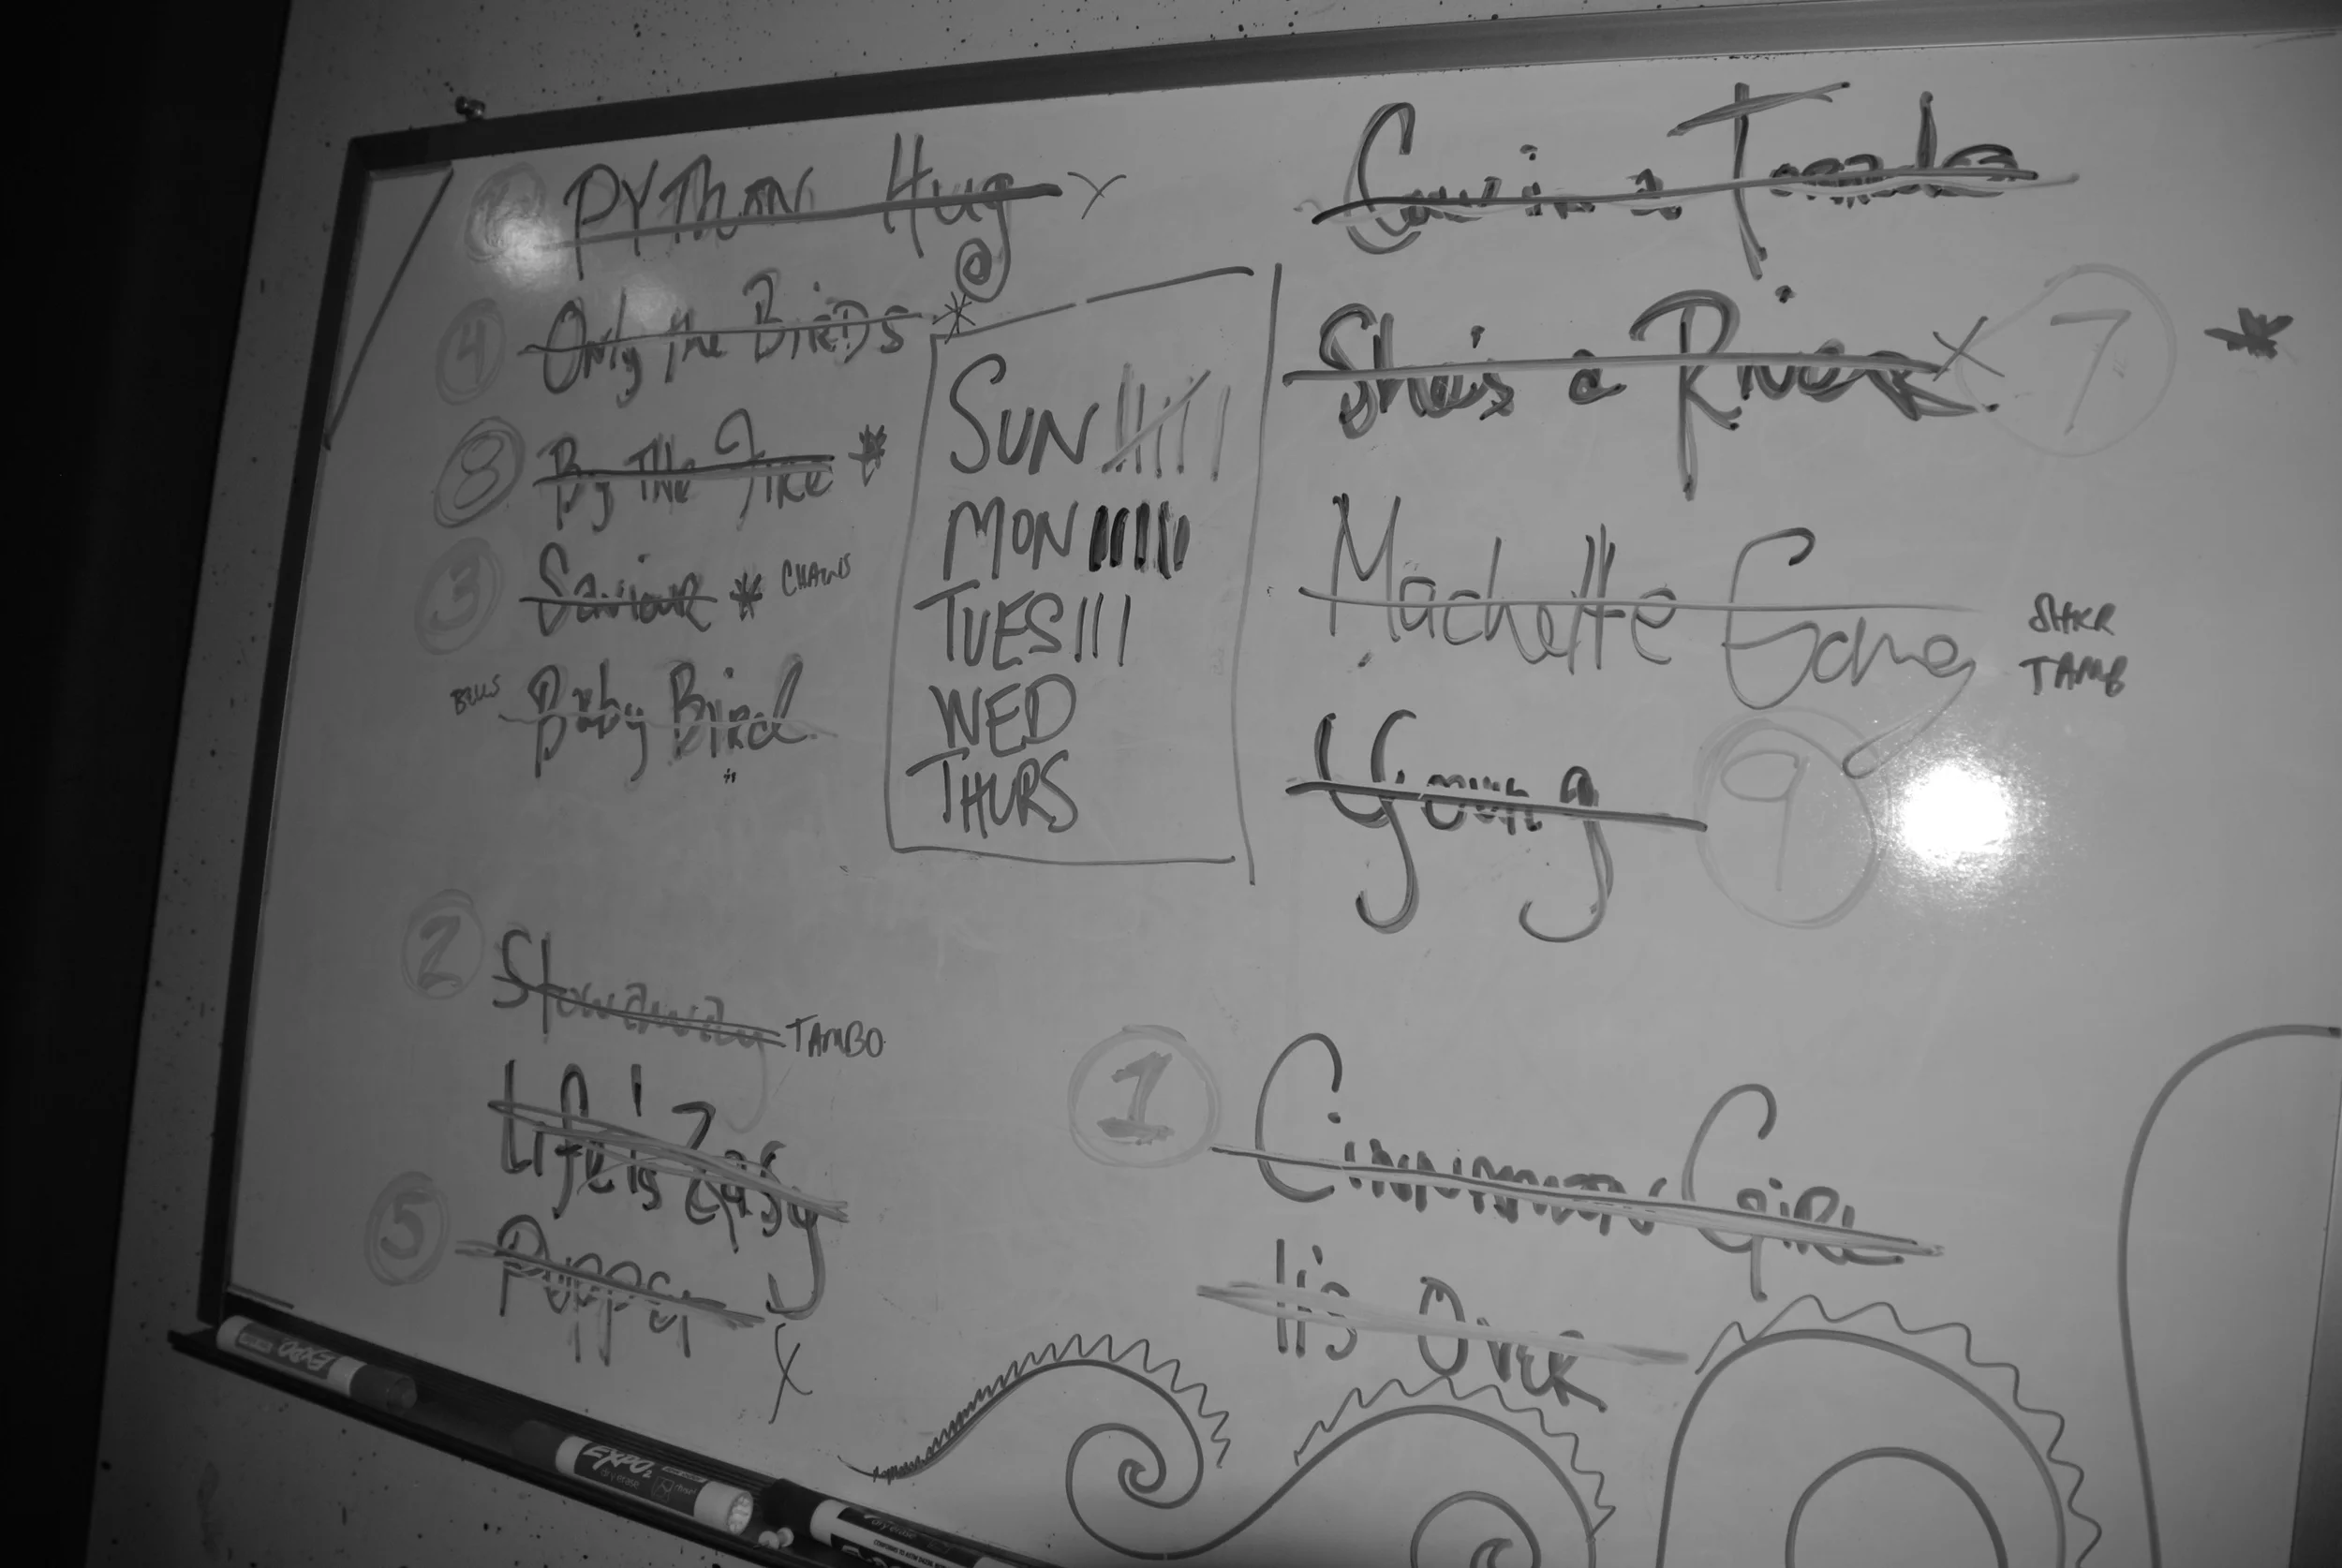 PYTHON Hug X
④ Only The BIRDS *
⑧ By THe Fire *
③ Saviour * CHAINS
BELLS Baby Bird
SUN
MON
TUES
WED
THURS
② Stowaway TAMBO
Life is Easy
⑤ PUPPET X
Cow in a Tornado
She's a River X ⑦ *
Machette Gang SHKR
TAMB
Young ⑨
① CINNAMON GiRL
It's OVER
EXPO
EXPO
dry erase